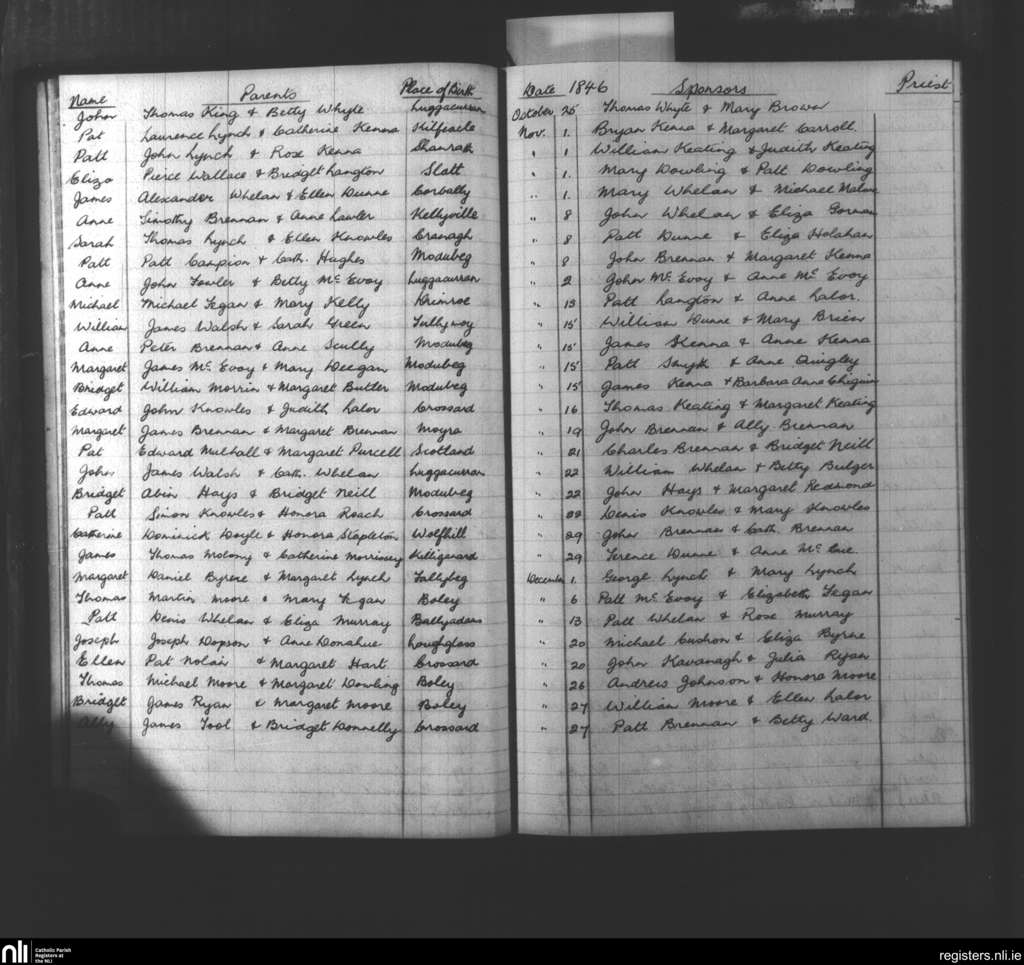 Name Parents Place of Birth Date 1846 Sponsors Priest
John Thomas King & Betty Whyte Luggacurran October 25 Thomas Whyte & Mary Brown
Pat Laurence Lynch & Catherine Kenna Kilfeacle Nov. 1. Bryan Kenna & Margaret Carroll
Patt John Lynch & Rose Kenna Shanrah " 1 William Keating & Judith Keating
Eliza Pierce Wallace & Bridget Langton Slatt " 1. Mary Dowling & Patt Dowling
James Alexander Whelan & Ellen Dunne Corbally " 1. Mary Whelan & Michael
Anne Timothy Brennan & Anne Lawler Kellyville " 8 John Whelan & Eliza Gorman
Sarah Thomas Lynch & Ellen Knowles Cranagh " 8 Patt Dunne & Eliza Holahan
Patt Patt Campion & Cath. Hughes Modubeg " 8 John Brennan & Margaret Kenna
Anne John Fowler & Betty Mc Evoy Luggacurran " 2 John Mc Evoy & Anne Mc Evoy
Michael Michael Fegan & Mary Kelly " 13 Patt Langton & Anne Lalor.
William James Walsh & Sarah Green " 15 William Dunne & Mary Brien
Anne Peter Brennan & Anne Scully Modubeg " 15 James Kenna & Anne Kenna
Margaret James Mc Evoy & Mary Deegan Modubeg " 15 Patt Smyth & Anne Quigley
Bridget William Morrin & Margaret Butler Modubeg " 15 James Kenna & Barbara Anne
Edward John Knowles & Judith Lalor Crossard " 16 Thomas Keating & Margaret Keating
Margaret James Brennan & Margaret Brennan Moyra " 19 John Brennan & Ally Brennan
Pat Edward Mulhall & Margaret Purcell Scotland " 21 Charles Brennan & Bridget Neill
John James Walsh & Cath. Whelan Luggacurran " 22 William Whelan & Betty Bulger
Bridget Abin Hays & Bridget Neill Modubeg " 22 John Hays & Margaret Redmond
Patt Simon Knowles & Honora Roach Crossard " Denis Knowles & Mary Knowles
Catherine Dominick Doyle & Honora Stapleton Wolfhill " 29 John Brennan & Cath. Brennan
James Thomas Molony & Catherine Morrissey " 29 Terence Dunne & Anne Mc Cue.
Margaret Daniel Byrne & Margaret Lynch Tallybeg December 1. George Lynch & Mary Lynch
Thomas Martin Moore & Mary Fegan Boley " 6 Patt Mc Evoy & Elizabeth Fegan
Patt Denis Whelan & Eliza Murray Ballyadams " 13 Patt Whelan & Rose Murray
Joseph Joseph Dopson & Anne Donahue Loughglass " 20 Michael Cushon & Eliza Byrne
Ellen Pat Nolan & Margaret Hart Crossard " 20 John Kavanagh & Julia Ryan
Thomas Michael Moore & Margaret Dowling Boley " 26 Andrew Johnson & Honora Moore
Bridget James Ryan & Margaret Moore Boley " 27 William Moore & Ellen Lalor
Ally James Tool & Bridget Donnelly Crossard " 27 Patt Brennan & Betty Ward.
nli Catholic Parish Registers at the NLI
registers.nli.ie